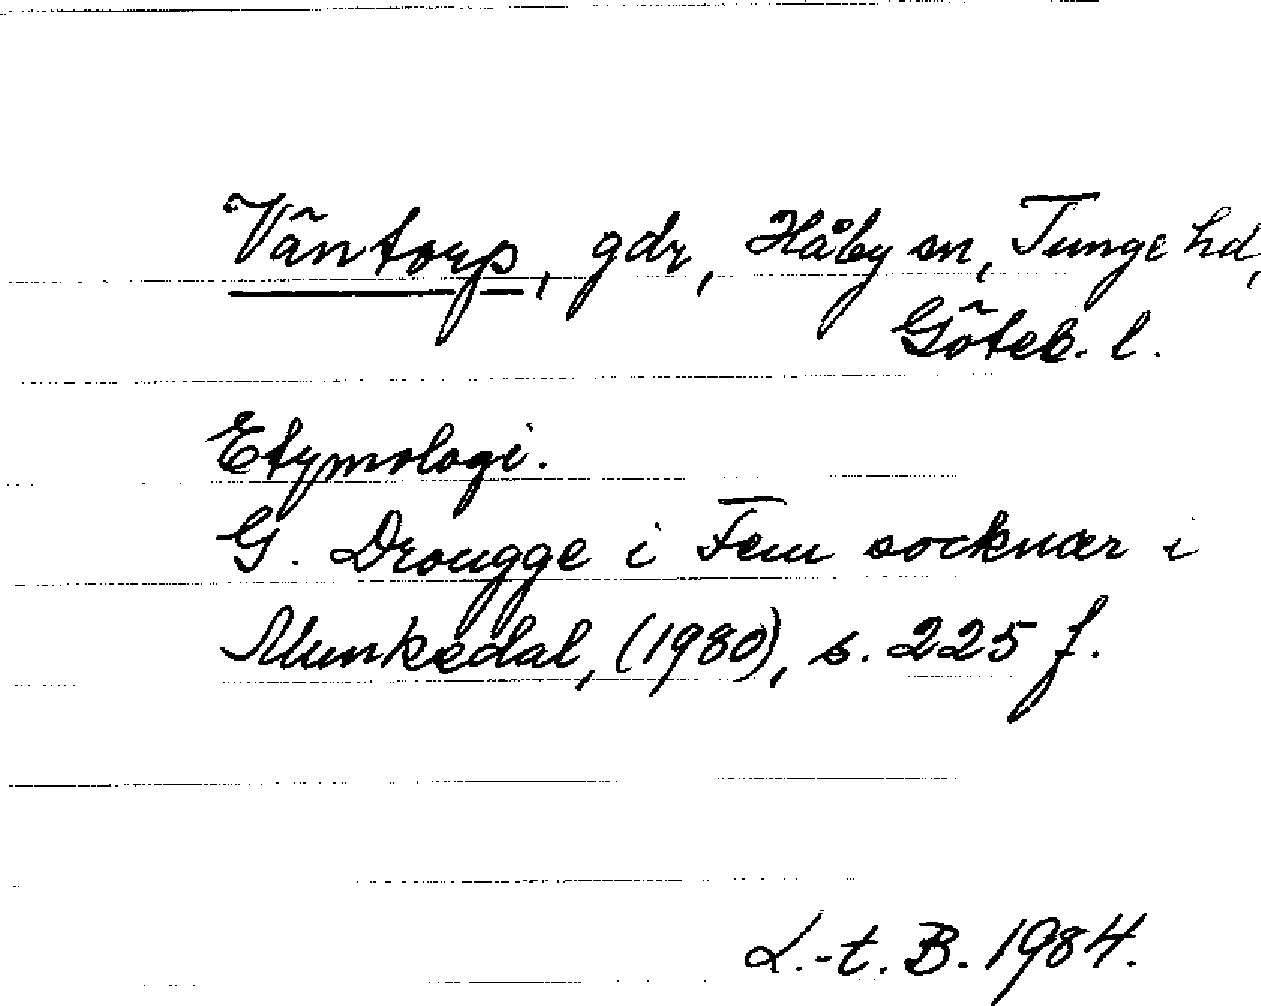 Väntorp, gdr, Håby sn, Tunge hd,
Göteb. l.
Etymologi.
G. Drougge i Fem socknar i
Munkedal, (1980), s. 225 f.
L.-t. B. 1984.